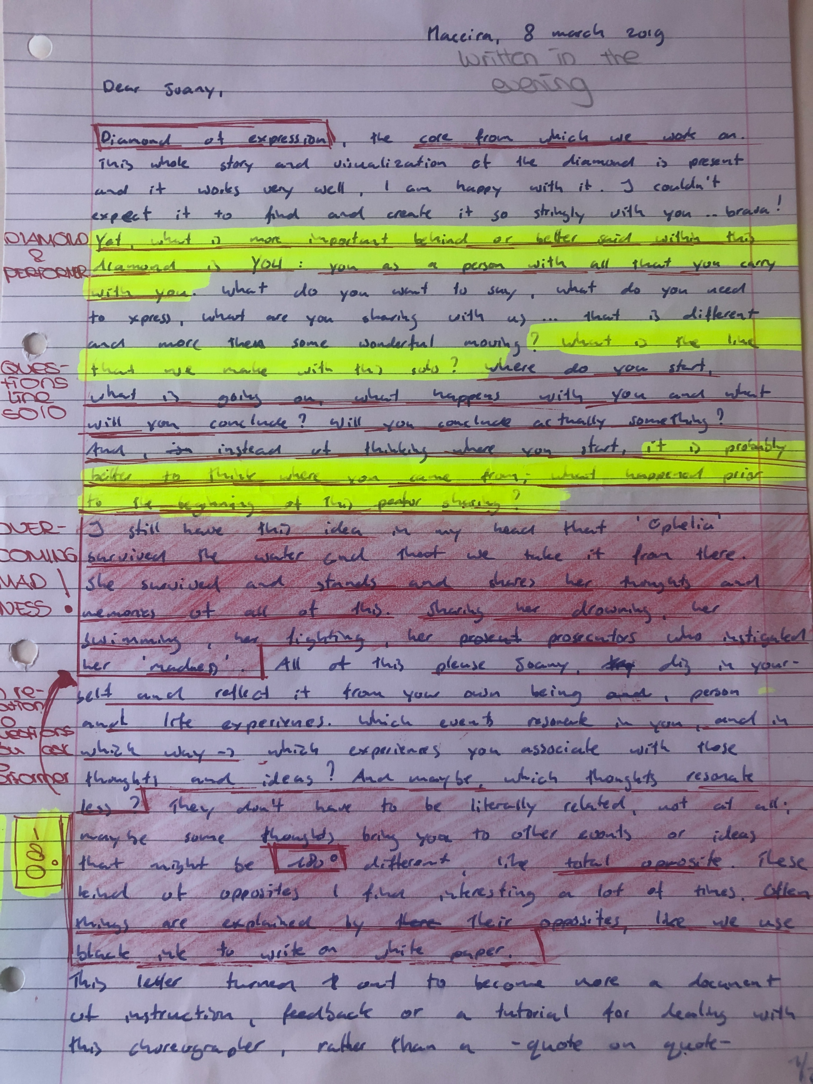 Maceira, 8 march 2019
written in the
evening
Dear Joany,
Diamond of expression, the core from which we work on.
This whole story and visualization of the diamond is present
and it works very well, I am happy with it. I couldn't
expect it to find and create it so stringly with you .. brava!
DIAMOND
&
PERFORMER
Yet, what is more important behind or better said within this
diamond is YOU: you as a person with all that you carry
with you. What do you want to say, what do you need
to xpress, what are you sharing with us... that is different
and more then some wonderful moving? What is the line
that we make with this solo? Where do you start,
QUES-
TIONS
LINE
SOLO
what is going on, what happens with you and what
will you conclude? Will you conclude actually something?
And, instead of thinking where you start, it is probably
better to think where you came from; what happened prior
to the beginning of this sharing?
OVER-
COMING
MAD
NESS
!
I still have this idea in my head that 'Ophelia'
survived the water and that we take it from there.
She survived and stands and shares her thoughts and
memories of all of this. Sharing her drowning, her
swimming, her fighting, her prosecutors who instigated
her 'madness'. All of this please Joany, dig in your-
self and reflect it from your own being and, person
and life experiences. Which events resonate in you, and in
which way → which experiences you associate with those
thoughts and ideas? And maybe, which thoughts resonate
less? They don't have to be literally related, not at all;
maybe some thoughts bring you to other events or ideas
that might be 180° different, like total opposite. These
180°
kind of opposites I find interesting a lot of times. Often
things are explained by their opposites, like we use
black ink to write on white paper.
This letter turned out to become more a document
of instruction, feedback or a tutorial for dealing with
this choreographer, rather than a -quote on quote-